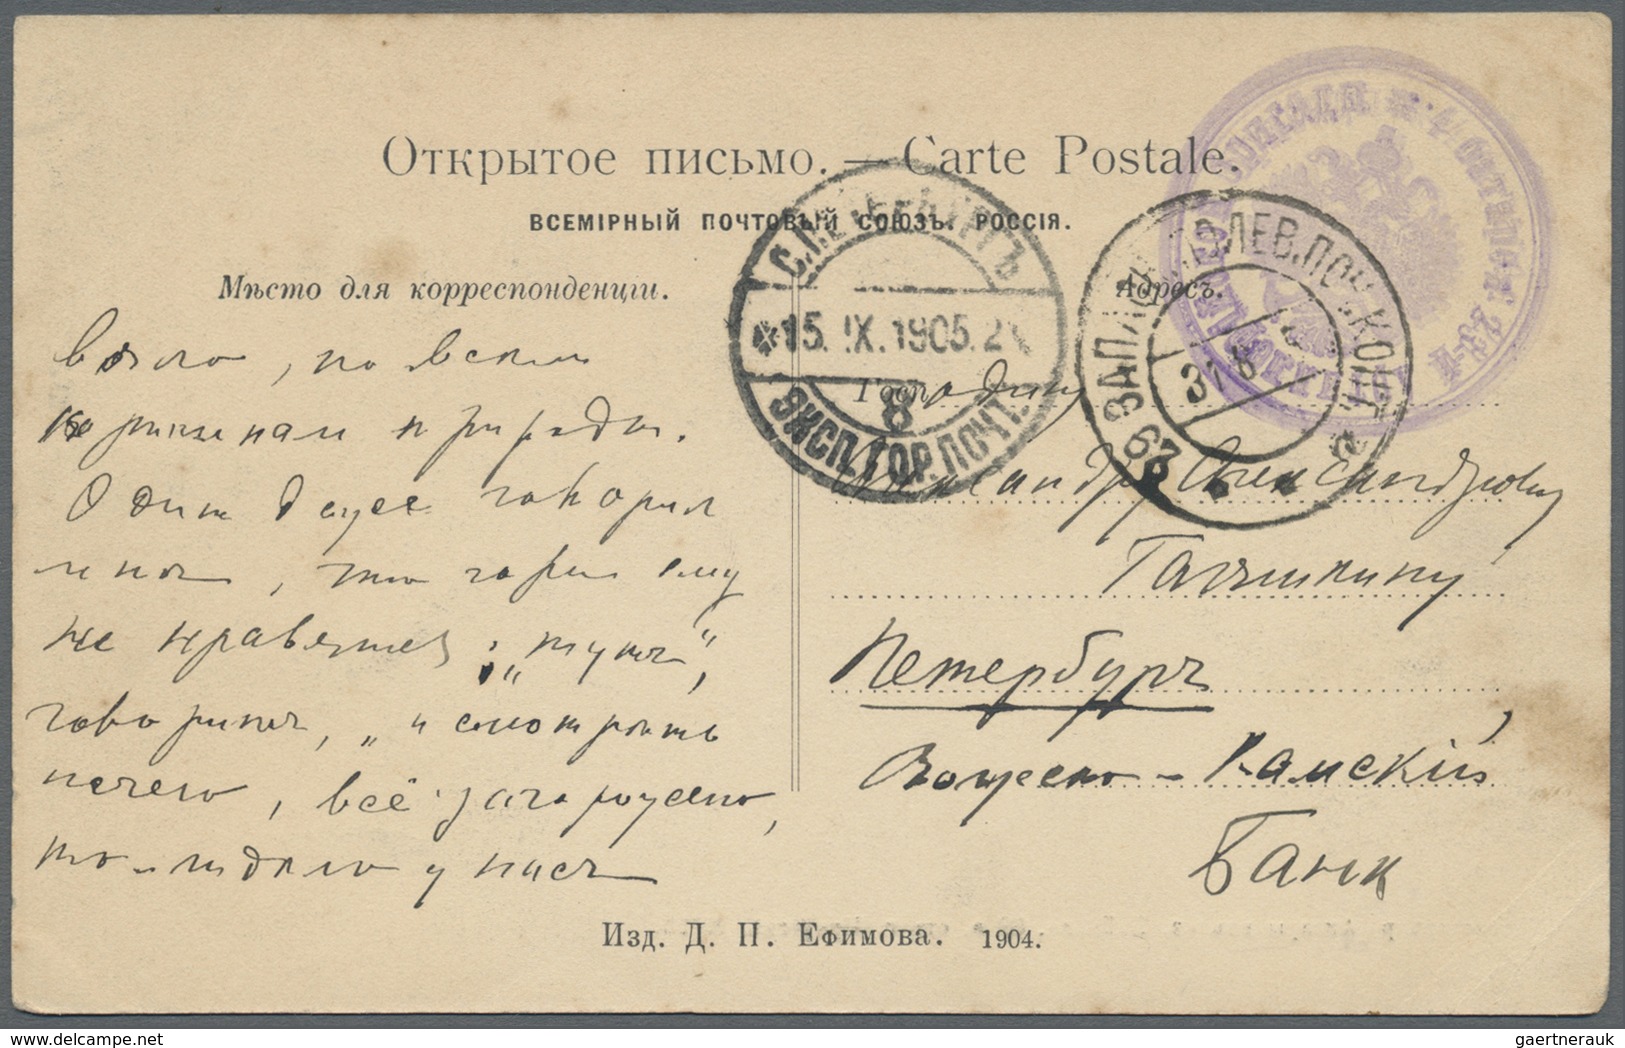 Открытое письмо. — Carte Postale.
ВСЕМІРНЫЙ ПОЧТОВЫЙ СОЮЗЪ. РОССІЯ.
Мѣсто для корреспонденціи.
Адресъ.
С.ПЕТЕРБУРГЪ
15.IX.1905.2
8
ЭКСП.ГОР.ПОЧТ.
ПОЛЕВ.ПОЧ.КОНТ.
31 8
67 ЗАПАС
по всем
природы.
Один даже говорил
мне, что горы ему
не нравятся: „тутъ“,
говоритъ, „и смотрѣть
нечего, всё загорожено,
то-ли дѣло у насъ
Господину
Александру Александровичу
Петербургъ
Волжско-Камскій
Банк
Изд. Д. П. Ефимова. 1904.
gaertnerauk